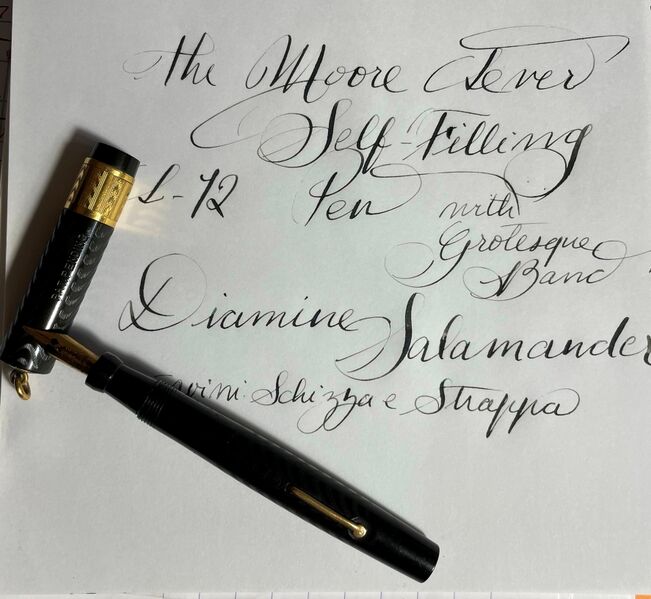 the Moore Lever
Self-Filling
L-72 Pen with
Grotesque
Band
Diamine Salamander
Schizza e Strappa